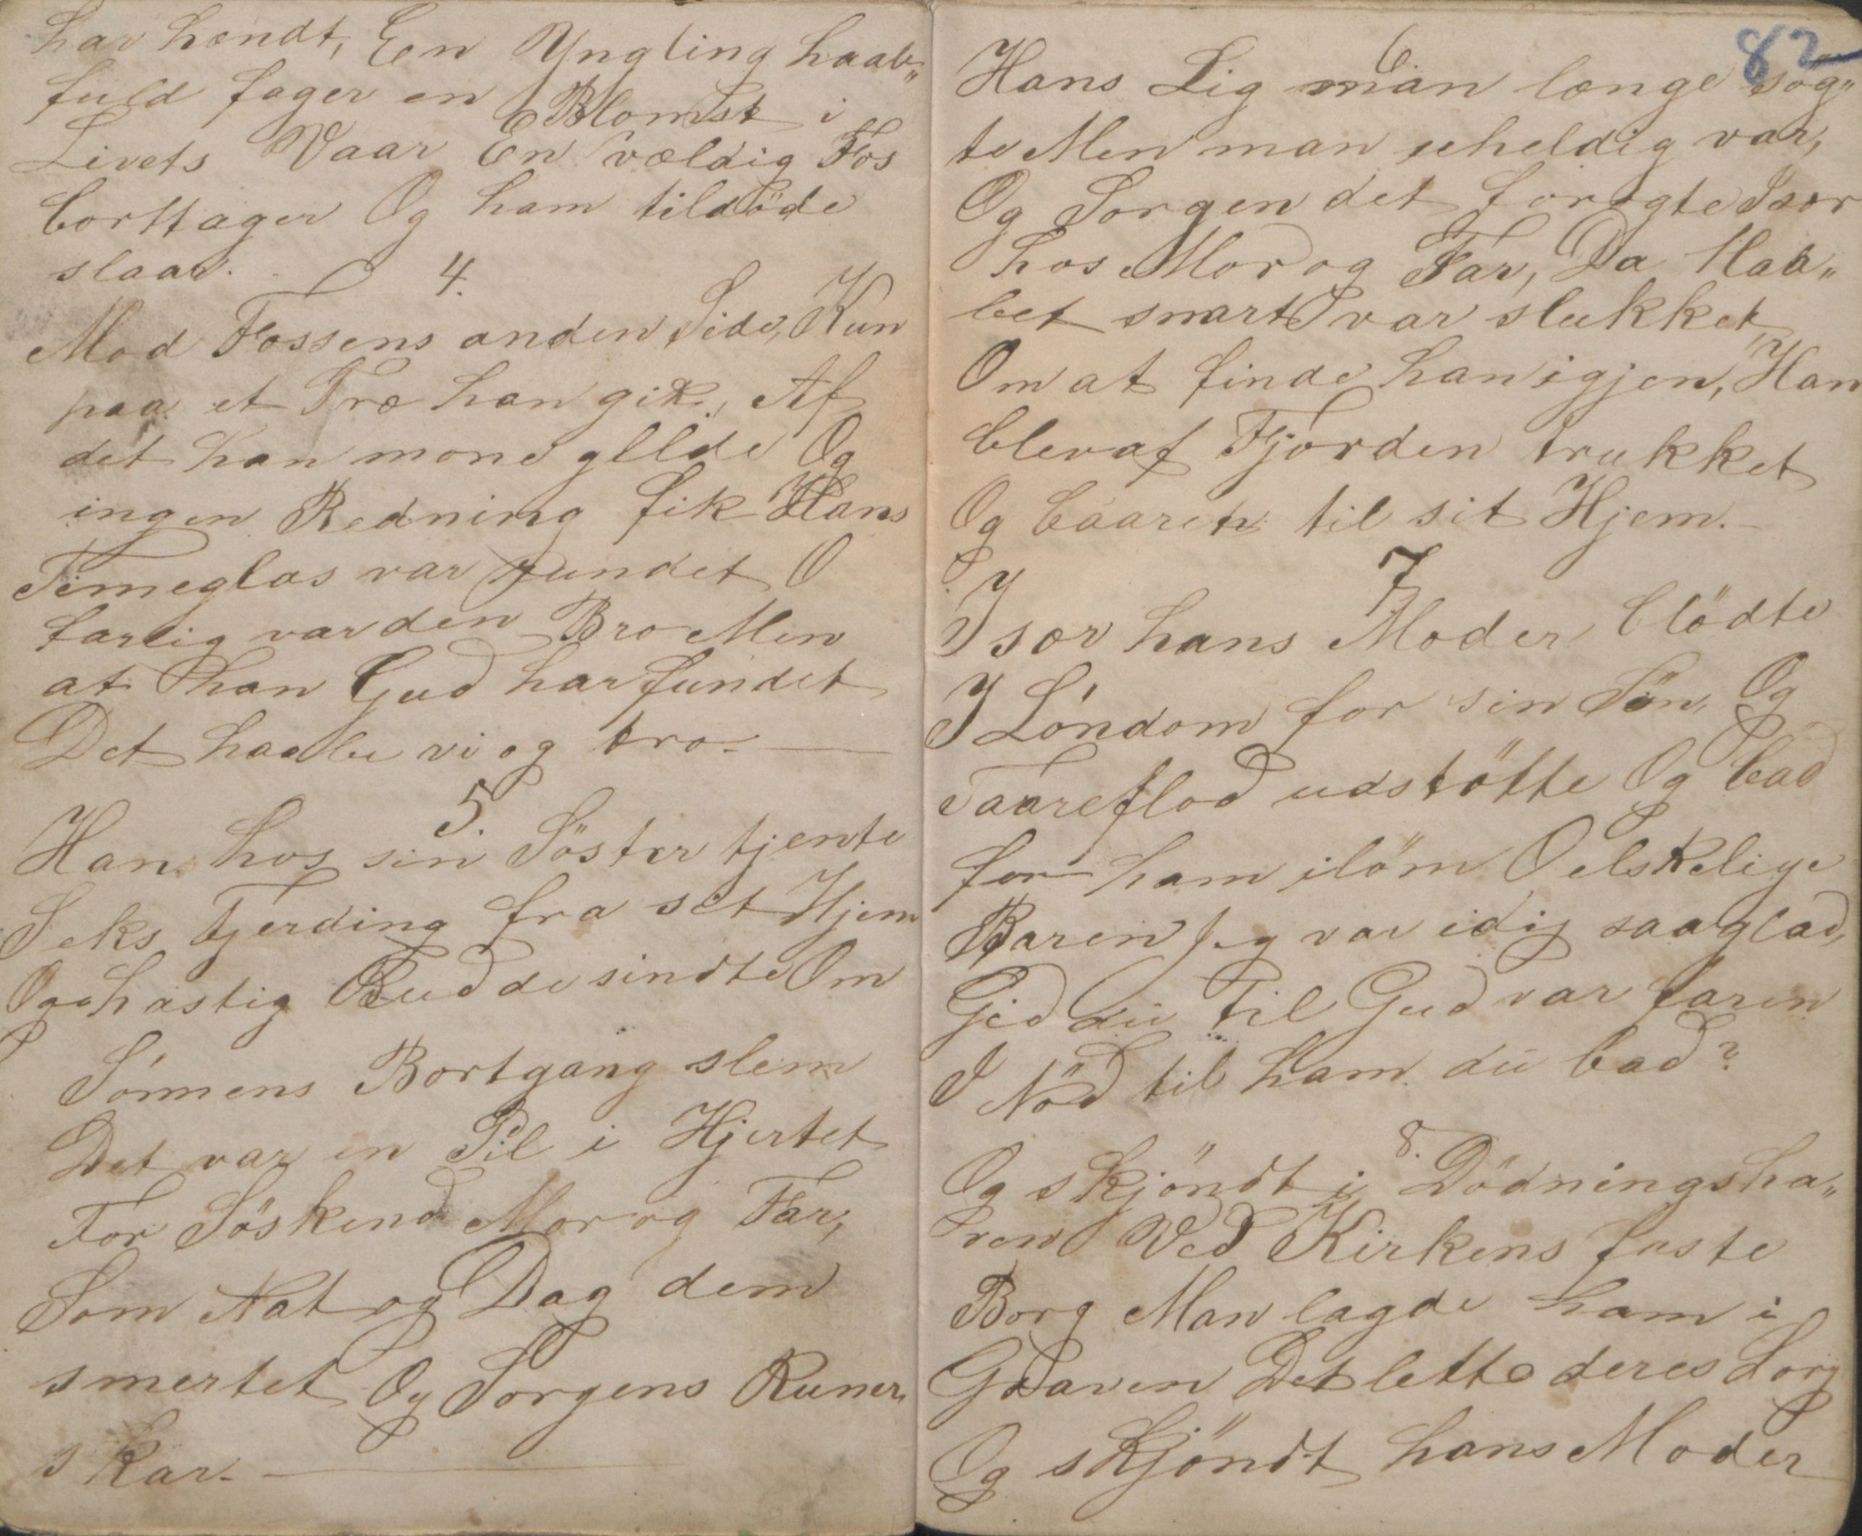 har hændt, Een Yngling haab„
fuld fager en Blomst i
Livets Vaar En vældig Fos
borttager Og ham tildöde
slaar.
4.
Mod Fossens anden Side, Kun
paa et Træ han gik, Af
det han mone gllde Og
ingen Redning fik Hans
Timeglas var rundet O
farlig var den Bro Men
at han Gud har fundet
Det haabe vi og tro.
5.
Han hos sin Söster tjente
Seks Fjerding fra sit Hjem
Og hastig Bud de sindte Om
Sönnens Bortgang slem
Det var en Pil i Hjertet
For Söskend Mor og Far,
Som Nat og Dag dem
smertet Og Sorgens Runer
skar.
82
6
Hans Lig man længe sög„
te Men man uheldig var,
Og Sorgen det forögte Især
hos Mor og Far, Da Haa„
bet snart var slukket,
Om at finde han igjen, Han
blev af Fjorden trukket
Og baaren til sit Hjem.
7
Især hans Moder blödte
I Löndom for sin Sön, Og
Taareflod udstötte Og bad
for ham ilöm O elskelige
Baren Jeg var idig saa glad,
Gid du til Gud var faren
I Nöd til ham du bad?
8.
Og skjöndt i Dödningsha„
ven Ved Kirkens faste
Borg Man lagde ham i
Graven Det lette deres Sorg
Og skjöndt hans Moder